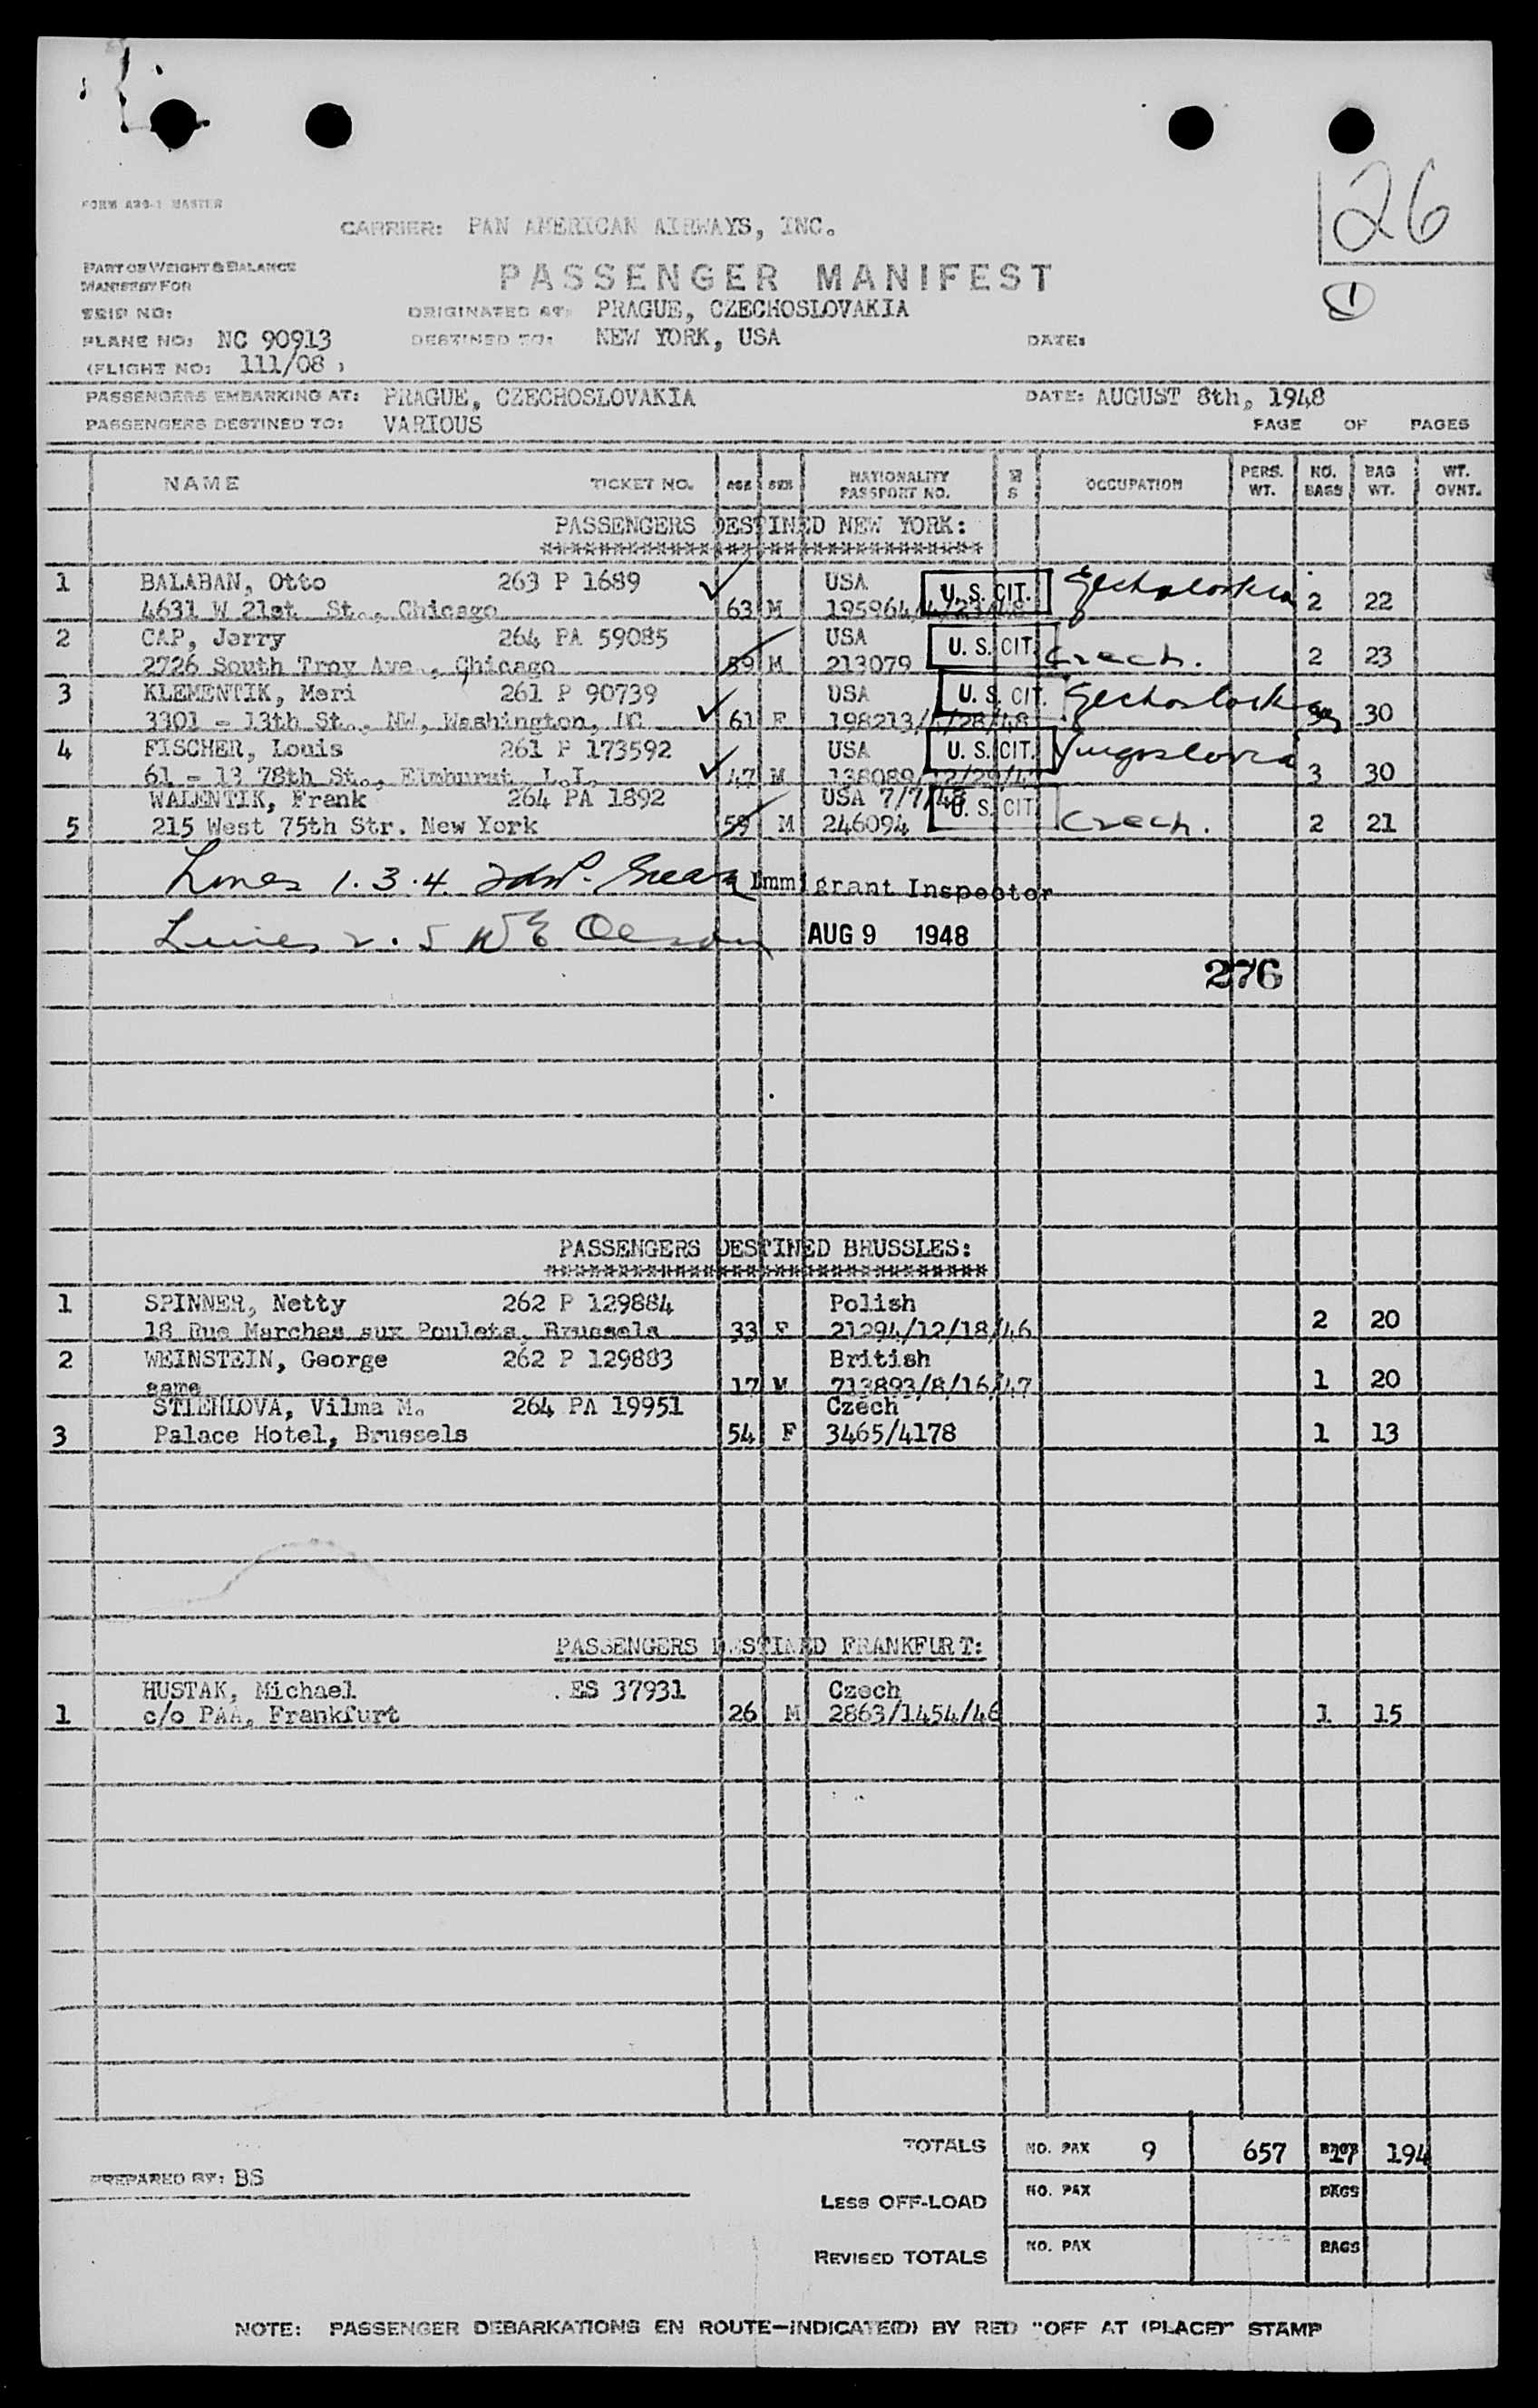 26
FORM 439-1 MASTER
CARRIER: PAN AMERICAN AIRWAYS, INC.
PART OF WEIGHT & BALANCE
MANIFEST FOR
PASSENGER MANIFEST
1
TRIP NO:
ORIGINATED AT: PRAGUE, CZECHOSLOVAKIA
PLANE NO: NC 90913 DESTINED TO: NEW YORK, USA DATE:
(FLIGHT NO: 111/08 )
PASSENGERS EMBARKING AT: PRAGUE, CZECHOSLOVAKIA DATE: AUGUST 8th, 1948
PASSENGERS DESTINED TO: VARIOUS PAGE OF PAGES
NAME TICKET NO. AGE SEX NATIONALITY PASSPORT NO. M S OCCUPATION PERS. WT. NO. BAGS BAG WT. WT. OVNT.
PASSENGERS DESTINED NEW YORK:
1 BALABAN, Otto 263 P 1689 USA U.S. CIT.
4631 W 21st St., Chicago 63 M 195964/4/23/48 2 22
2 CAP, Jerry 264 PA 59085 USA U. S. CIT.
2726 South Troy Ave., Chicago 59 M 213079 Czech. 2 23
3 KLEMENTIK, Meri 261 P 90739 USA U. S. CIT.
3301 - 13th St., NW, Washington, DC 61 F 198213/ /28/48 30
4 FISCHER, Louis 261 P 173592 USA U. S. CIT. Yugoslovia
61 - 13 78th St., Elmhurst, L.I. 47 M 138089/12/29/4 3 30
WALENTIK, Frank 264 PA 1892 USA 7/7/48 U. S. CIT.
5 215 West 75th Str. New York 59 M 246094 Czech. 2 21
Lines 1.3.4 Immigrant Inspector
Lines 2.5 W E Olson AUG 9 1948
276
PASSENGERS DESTINED BRUSSLES:
1 SPINNER, Netty 262 P 129884 Polish
18 Rue Marches aux Poulets, Brussels 33 F 21294/12/18/46 2 20
2 WEINSTEIN, George 262 P 129883 British
same 17 M 713893/8/16/47 1 20
STIEHLOVA, Vilma M. 264 PA 19951 Czech
3 Palace Hotel, Brussels 54 F 3465/4178 1 13
PASSENGERS DESTINED FRANKFURT:
HUSTAK, Michael ES 37931 Czech
1 c/o PAA, Frankfurt 26 M 2863/1454/46 1 15
TOTALS NO. PAX 9 657 BAGS 17 194
PREPARED BY: BS
LESS OFF-LOAD NO. PAX BAGS
REVISED TOTALS NO. PAX BAGS
NOTE: PASSENGER DEBARKATIONS EN ROUTE—INDICATE(D) BY RED "OFF AT (PLACE)" STAMP